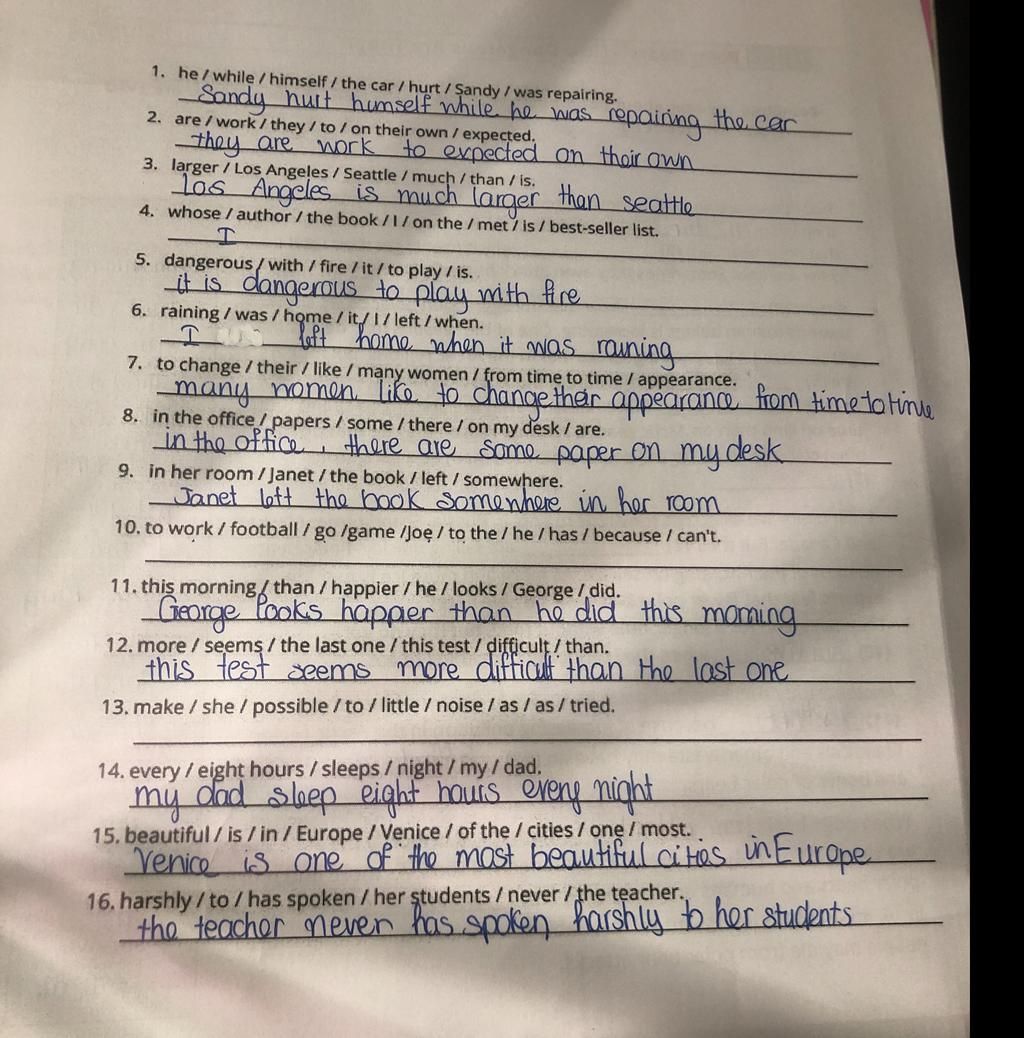 1. he / while / himself / the car / hurt / Sandy / was repairing.
Sandy hurt himself while he was repairing the car
2. are / work / they / to / on their own / expected.
they are work to expected on their own
3. larger / Los Angeles / Seattle / much / than / is.
Los Angeles is much larger than seattle
4. whose / author / the book / I / on the / met / is / best-seller list.
I
5. dangerous / with / fire / it / to play / is.
it is dangerous to play with fire
6. raining / was / home / it / I / left / when.
I left home when it was raining
7. to change / their / like / many women / from time to time / appearance.
many women like to change their appearance from time to time
8. in the office / papers / some / there / on my desk / are.
in the office , there are some paper on my desk
9. in her room / Janet / the book / left / somewhere.
Janet left the book somewhere in her room
10. to work / football / go /game /Joe / to the / he / has / because / can't.
11. this morning / than / happier / he / looks / George / did.
George looks happier than he did this morning
12. more / seems / the last one / this test / difficult / than.
this test seems more difficult than the last one
13. make / she / possible / to / little / noise / as / as / tried.
14. every / eight hours / sleeps / night / my / dad.
my dad sleep eight hours every night
15. beautiful / is / in / Europe / Venice / of the / cities / one / most.
Venice is one of the most beautiful cities in Europe
16. harshly / to / has spoken / her students / never / the teacher.
the teacher never has spoken harshly to her students